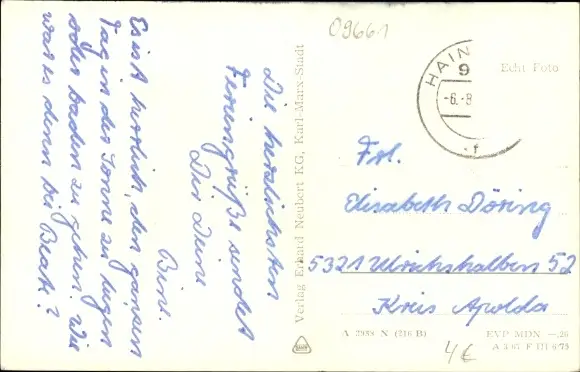 Die herzlichsten
Feriengrüße sendet
Dir Deine
Bine.
Es ist herrlich, den ganzen
Tag in der Sonne zu liegen
oder baden zu gehen. Wie
war es denn bei Beate?
Verlag Erhard Neubert KG, Karl-Marx-Stadt
09661
HAIN
9
-6.-8
-f
Echt Foto
Frl.
Elisabeth Döring
5321 Ulrichshalben 52
Kreis Apolda
A 2988 N (216 B)
EVP MDN —,20
A 3/67 F III 6/73
4€